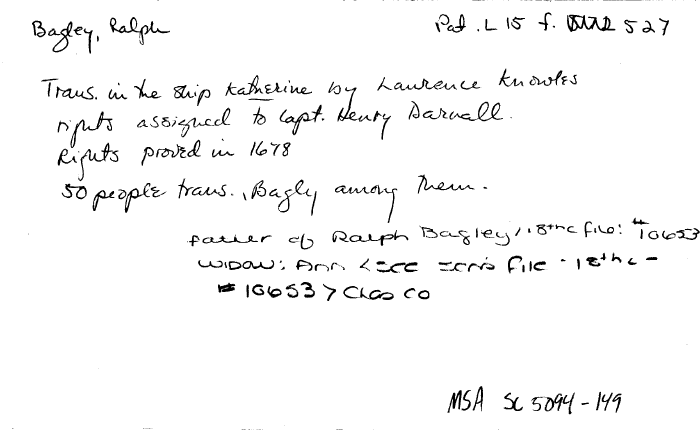 Bagley, Ralph
Pat. L 15 f. 527
Trans. in the ship Katherine by Laurence Knowles
rights assigned to Capt. Henry Darnall.
Rights proved in 1678
50 people trans., Bagly among them.
father of Ralph Bagley, 18thc file: #10653
widow: Ann <see Ann's file - 18thc -
#10653> Chas Co
MSA SC 5094-149